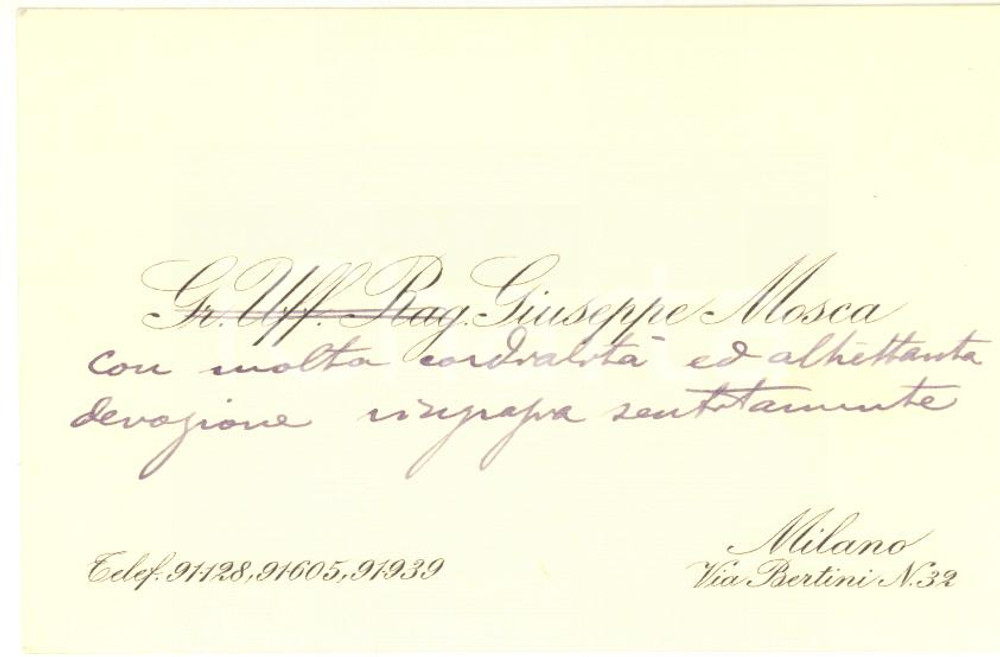 Gr. Uff. Rag. Giuseppe Mosca
con molta cordialità ed altrettanta
devozione ringrazia sentitamente
Telef. 91-128, 91605, 91-939
Milano
Via Bertini N. 32